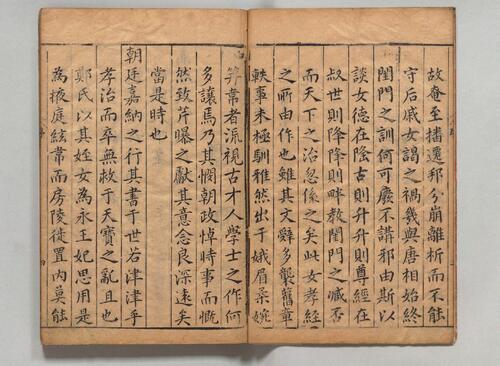 故奄至播遷邦分崩離析而不能
守后戚女謁之禍幾與唐相始終
閨門之訓何可廢不講邪由斯以
談女德在隂古則升升則尊經在
叔世則降降則畔教閨門之臧否
而天下之治忽係之矣此女孝經
之所由作也雖其文辭多襲舊章
軼事未極馴雅然出于娥眉柔婉
筭常者流視古才人學士之作何
多讓焉乃其憫朝政悼時事而慨
然致芹曝之獻其意念良深遠矣
當是時也
朝廷嘉納之行其書于世若津津乎
孝治而卒無救于天寶之亂且也
鄭氏以其姪女為永王妃思用是
為掖庭絃常而房陵徙置內莫能